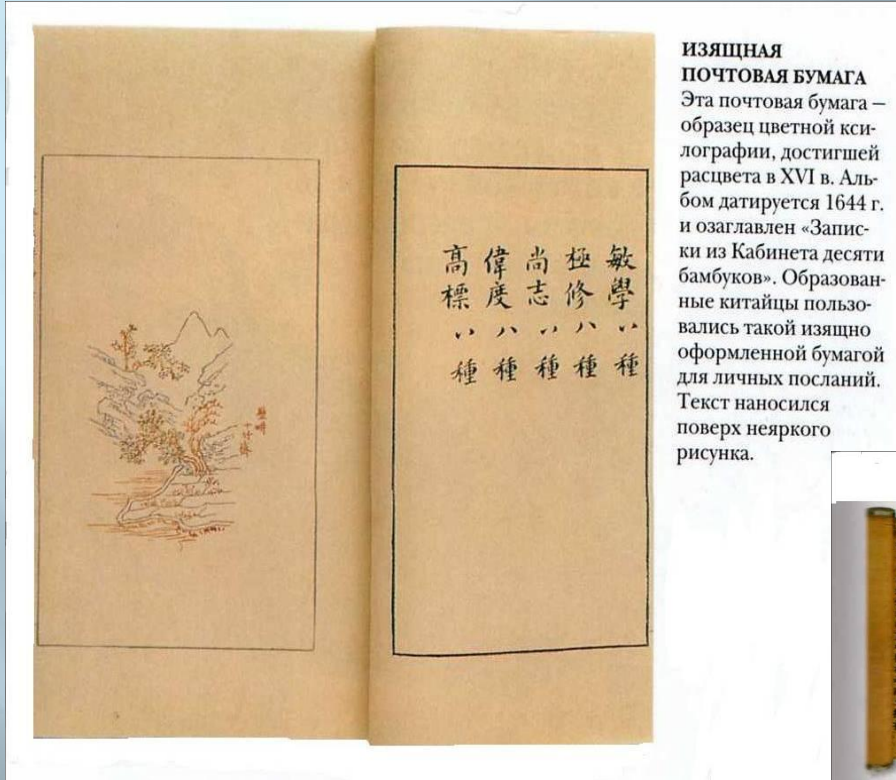 敏學八種
極修八種
尚志八種
偉度八種
高標八種
ИЗЯЩНАЯ
ПОЧТОВАЯ БУМАГА
Эта почтовая бумага –
образец цветной кси-
лографии, достигшей
расцвета в XVI в. Аль-
бом датируется 1644 г.
и озаглавлен «Запис-
ки из Кабинета десяти
бамбуков». Образован-
ные китайцы пользо-
вались такой изящно
оформленной бумагой
для личных посланий.
Текст наносился
поверх неяркого
рисунка.